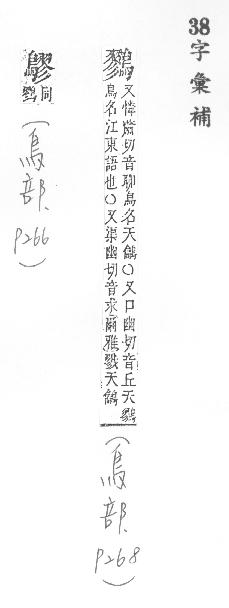 38字彙補
鷚 又憐蕭切音聊鳥名天鸙○又口幽切音丘天鷚
鳥名江東語也○又渠幽切音求爾雅鷚天鸙
(鳥部 P268)
同鷚
(鳥部 P266)